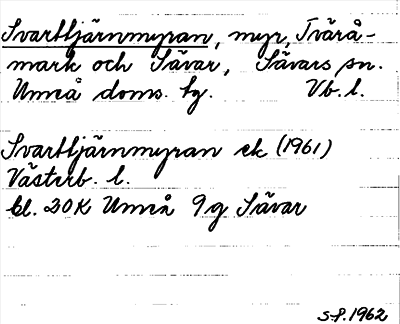 Svarttjärnmyran, myr, Tvärå-
mark och Sävar, Sävars sn.
Umeå doms. tg. Vb. l.
Svarttjärnmyran ek (1961)
Västerb. l.
bl. 20K Umeå 9g Sävar
S-f. 1962